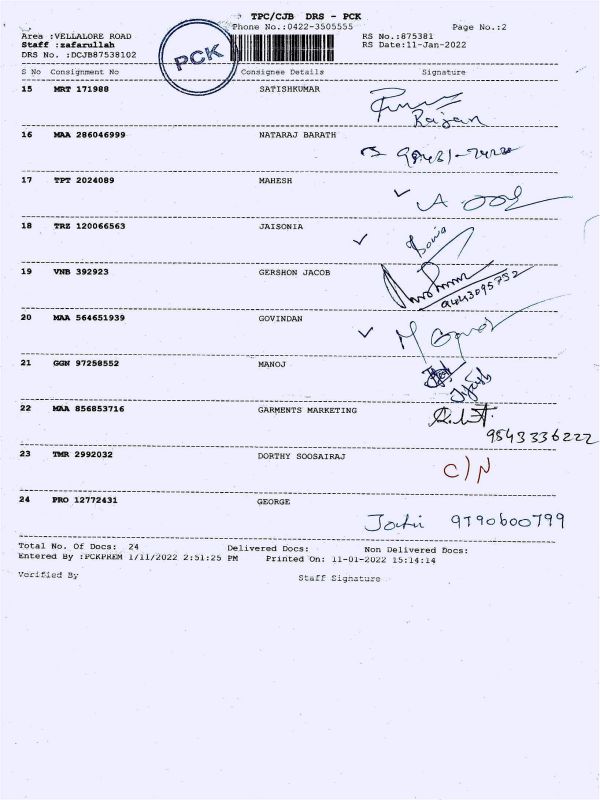 TPC/CJB DRS - PCK
Phone No.:0422-3505555 Page No.:2
Area :VELLALORE ROAD RS No.:875381
Staff :zafarullah RS Date:11-Jan-2022
DRS No. :DCJB87538102
PCK
S No Consignment No Consignee Details Signature
15 MRT 171988 SATISHKUMAR
Rajan
16 MAA 286046999 NATARAJ BARATH
17 TPT 2024089 MAHESH
18 TRZ 120066563 JAISONIA
19 VNB 392923 GERSHON JACOB
9443095752
20 MAA 564651939 GOVINDAN
21 GGN 97258552 MANOJ
22 MAA 856853716 GARMENTS MARKETING
9543336222
23 TMR 2992032 DORTHY SOOSAIRAJ
C/N
24 PRO 12772431 GEORGE
9790600799
Total No. Of Docs: 24 Delivered Docs: Non Delivered Docs:
Entered By :PCKPREM 1/11/2022 2:51:25 PM Printed On: 11-01-2022 15:14:14
Verified By Staff Signature